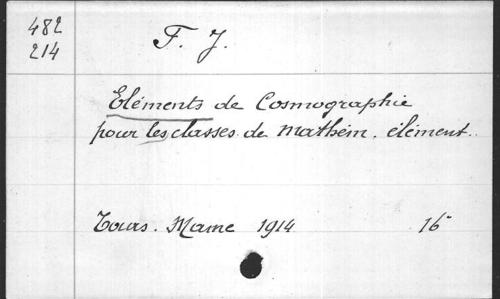 482
214
F. J.
Eléments de Cosmographie
pour les classes de mathém. élément.
Tours. Mame 1914 16°